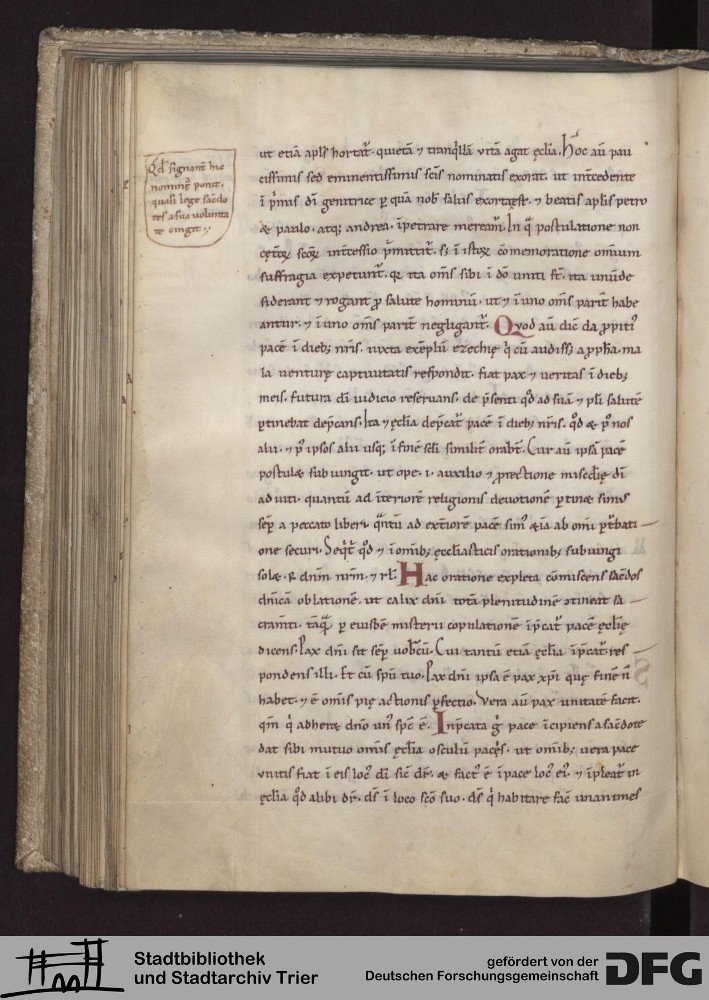 Qd̄ signant̄ hic
nomin̄ ponit.
quasi loco sacdo
tes a sua volunta
te cingit.
ut etiā apłs hortat̄. quietā ⁊ tranq̇llā vitā agat ęcłia. Hoc aū̄ pau
cissimis sed eminentissimis scīs nominatis exorat. ut int̄cedente
ī pⁱmis dī genitrice ꝑ quā nob̄ salus exorta ēst. ⁊ beatis apłis petro
& paulo. atq; andrea. īpetrare meream̄. In q̄ postulatione non
int̄cessio pⁱmittit̄. s; ī istoꝝ cōmemoratione omīum
suffragia expetunt̄. q̄ ita om̄s sibi ī dō uniti st̄. ita un
siderant ⁊ rogant ꝓ salute hominū. ut ⁊ ī uno om̄s parit̄ habe
antur. ⁊ ī uno om̄s parit̄ negligant̄. Quod aū̄ dic̄ da ꝓpitiꝰ
pacē ī dieb; nr̄is. iuxta exēplū ezechię q̇ cū audiss; a ꝓph̄a. ma
la venturę captiuitatis respondit. fiat pax ⁊ veritas ī dieb;
meis. futura dī iudicio reseruans. de p̄senti qd̄ ad suā ⁊ płi salutē
ꝑtinebat dep̄cans. Ita ⁊ ęcłia dep̄cat̄ pacē ī dieb; nr̄is. qd̄ & pꝰ nos
alii. ⁊ pꝰ ipsos alii usq; ī finē scłi similit̄ orabt̄. Cur aū̄ ipsā pacē
postulæ subiungit. ut ope. i. auxilio ⁊ ꝓtectione mis̄cdię dī
adiuti. quantū ad īteriorē religionis deuotionē ꝑtinæ simus
sēp a peccato liberi. q̄ntū ad ext̄iorē pacē simꝰ &iā ab omī ꝑt̄bati
one securi. Seqt̄ qd̄ ⁊ ī omīb; ęcclesiasticis orationib; subiungi
solæ. ꝑ dn̄m nr̄m. ⁊ rł. Hac oratione expleta cōmiscens sac̄dos
dn̄icā oblationē. ut calix dn̄i totā plenitudinē ꝯtineat sa
cramt̄i. tāq̄ ꝑ eiusdē misterii copulationē īp̄cat̄ pacē ęcłię
dicens. Pax dn̄i sit sēp uobcū. Cui tantū etiā ęcłia īp̄cat̄ res
pondens illi. Et cū spū tuo. Pax dn̄i ipsa ē pax xp̄i quę finē n̄
habet. ⁊ ē om̄is pię actionis ꝑfectio. Vera aū̄ pax unitatē facit.
qm̄ q̇ adheræ dn̄o unꝰ spc̄ ē. Inp̄cata g̊ pace īcipiens a sac̄dote
dat sibi mutuo omīs ęcłia osculū pacis. ut omīb; uera pace
unitis fiat ī eis locꝰ dī sic̄ dr̄. & factꝰ ē ī pace locꝰ eiꝰ. ⁊ īpleat̄ in
ęcłia qd̄ alibi dr̄. ds̄ ī loco scō suo. ds̄ q̇ habitare fac̄ unanimes
Stadtbibliothek
und Stadtarchiv Trier
gefördert von der
Deutschen Forschungsgemeinschaft
DFG